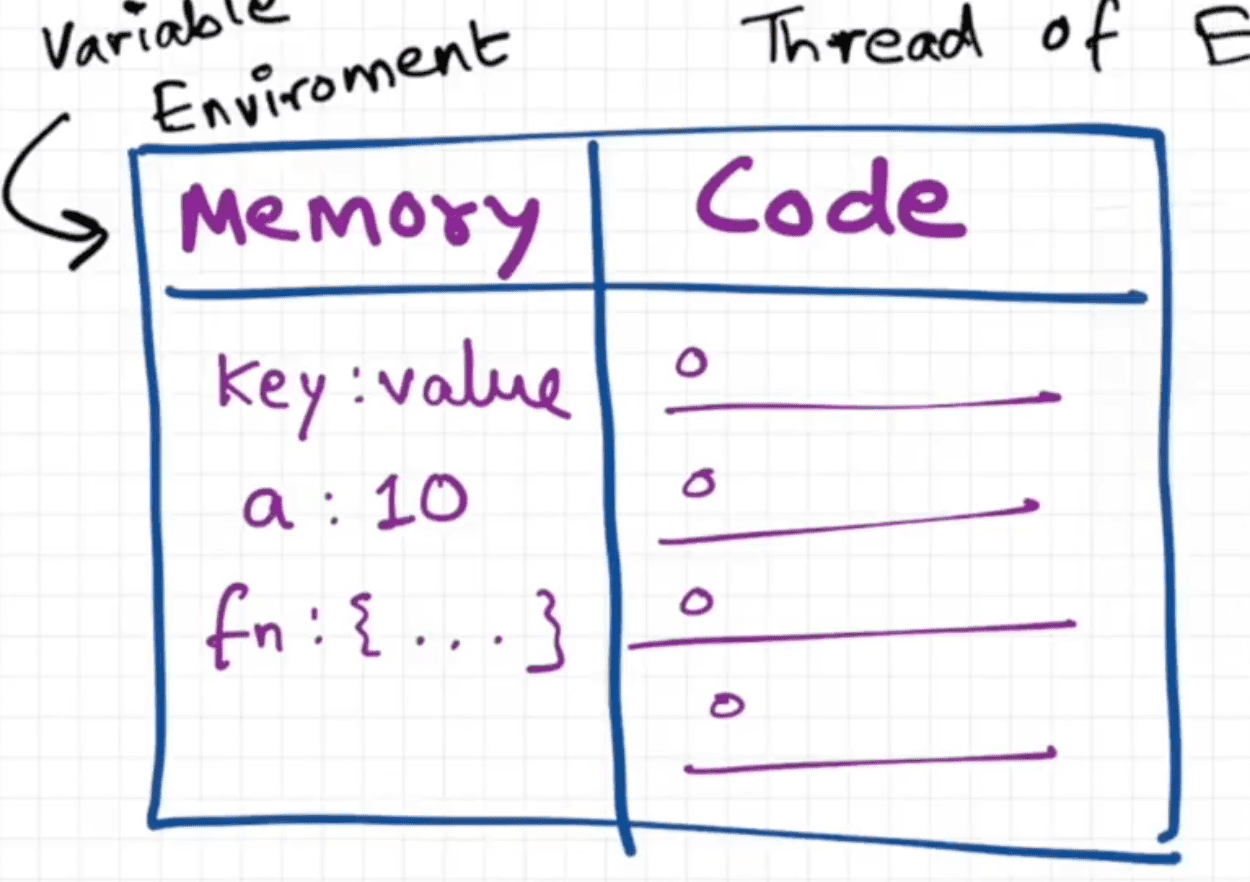 Variable
Enviroment
Thread of E
Memory
Code
key : value
a : 10
fn : { . . . }